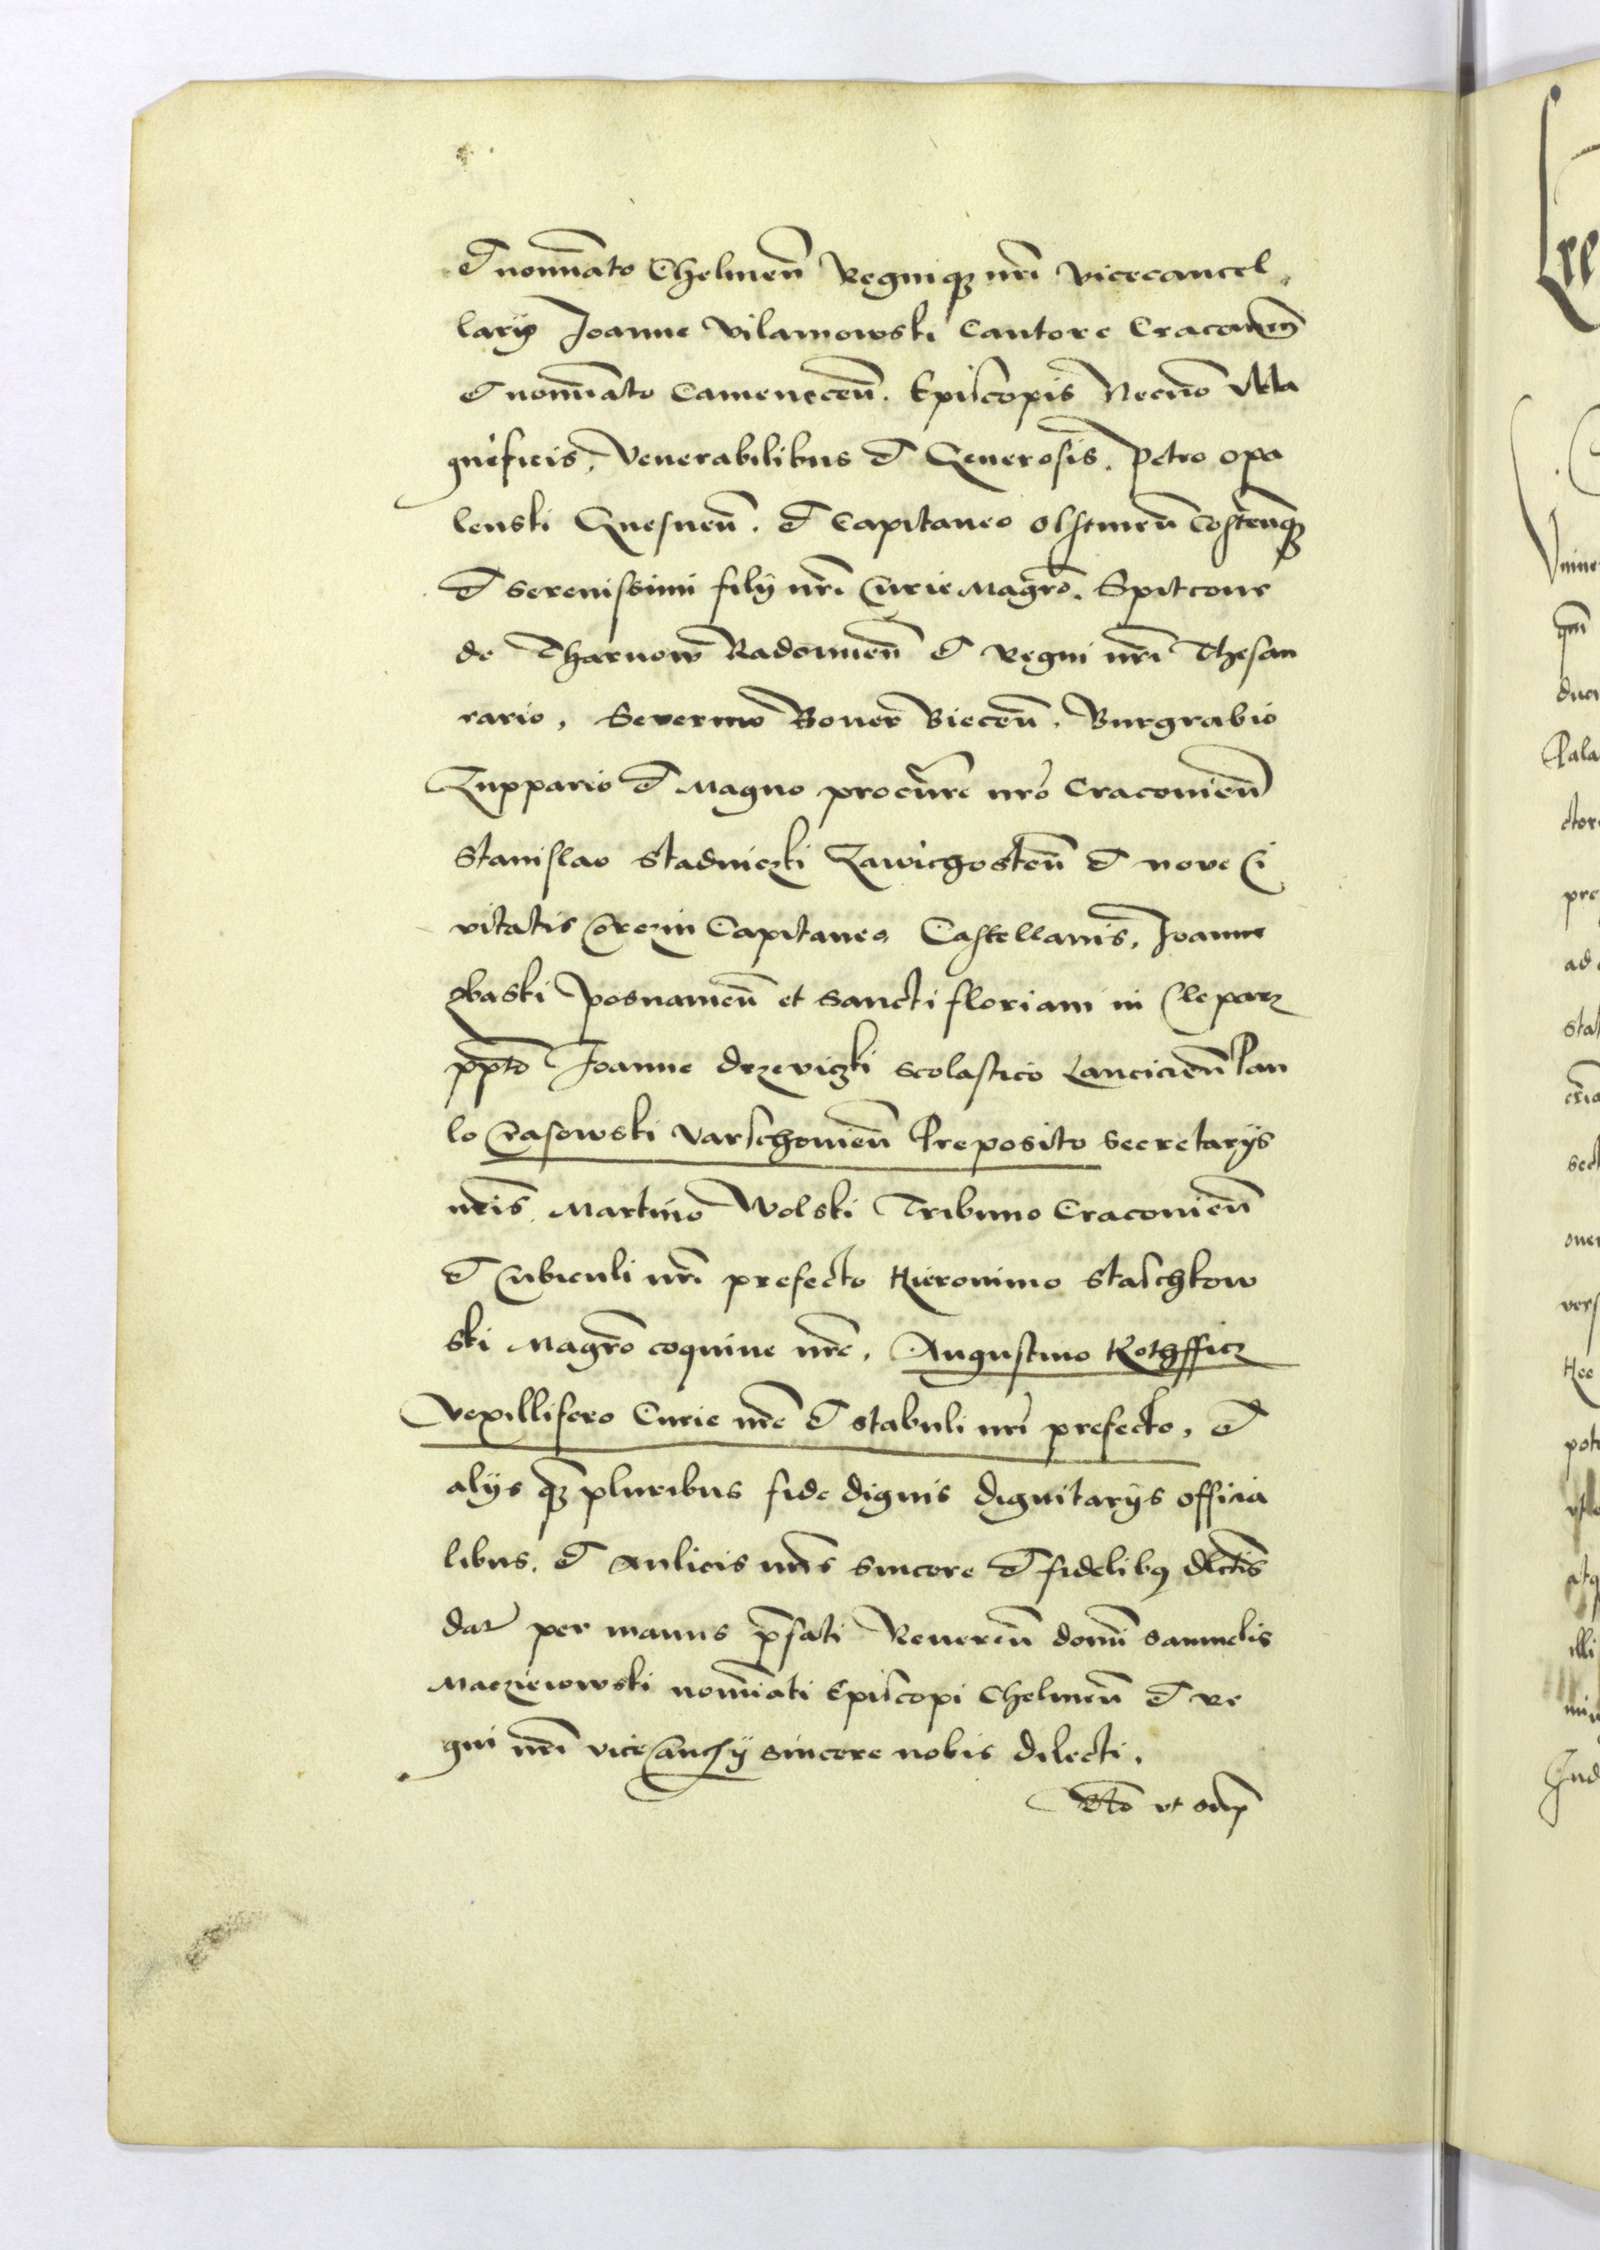 et nominato Chelmeñ Regniq̨ nr̃i vicecancel
larÿo Joanne vilamowski Cantore Cracovieñ
et nom̃iato Cameneceñ. Episcopis Necno Ma
gnificis, Venerabilibus et Generosis. Petro opa
lenski Gnesneñ. et Capitaneo olstineñ Costeñq̨
et serenissimi filÿ nr̃i Curie Magr̃o. Spitcone
de Tharnow Radomieñ et Regni nr̃i Thesau
rario, Severino Boner Bieceñ. Burgrabio
Zuppario et Magno procur̃re nr̃o Cracovieñ
Stanislao Stadniczki Zawichosteñ et nove Ci
vitatis Corczin Capitaneo Castellanis, Joanne
sbaski Posnanieñ et sancti floriani in Clepar
pp̃to Joanne drzeviczki scolastico Lancicieñ Pau
lo Vasowski Varschovieñ Preposito Secretarÿs
nr̃is. Martino Wolski Tribuno Cracovieñ
et Cubiculi nr̃i prefecto Hieronimo Staschkow
ski Magr̃o coquine nr̃e, Augustino Kothfficz
Vexillifero Curie nr̃e et stabuli nr̃i prefecto, et
alÿs q̨ pluribus fide dignis dignitarÿs officia
libus. et Aulicis nr̃is sincere et fidelibꝰ dlctis
dat per manus p̃fati Revereñ domi Samuelis
Macziejowski nom̃iati Episcopi Chelmeñ et re
gni nr̃i viceCancÿ sincere nobis dilecti.